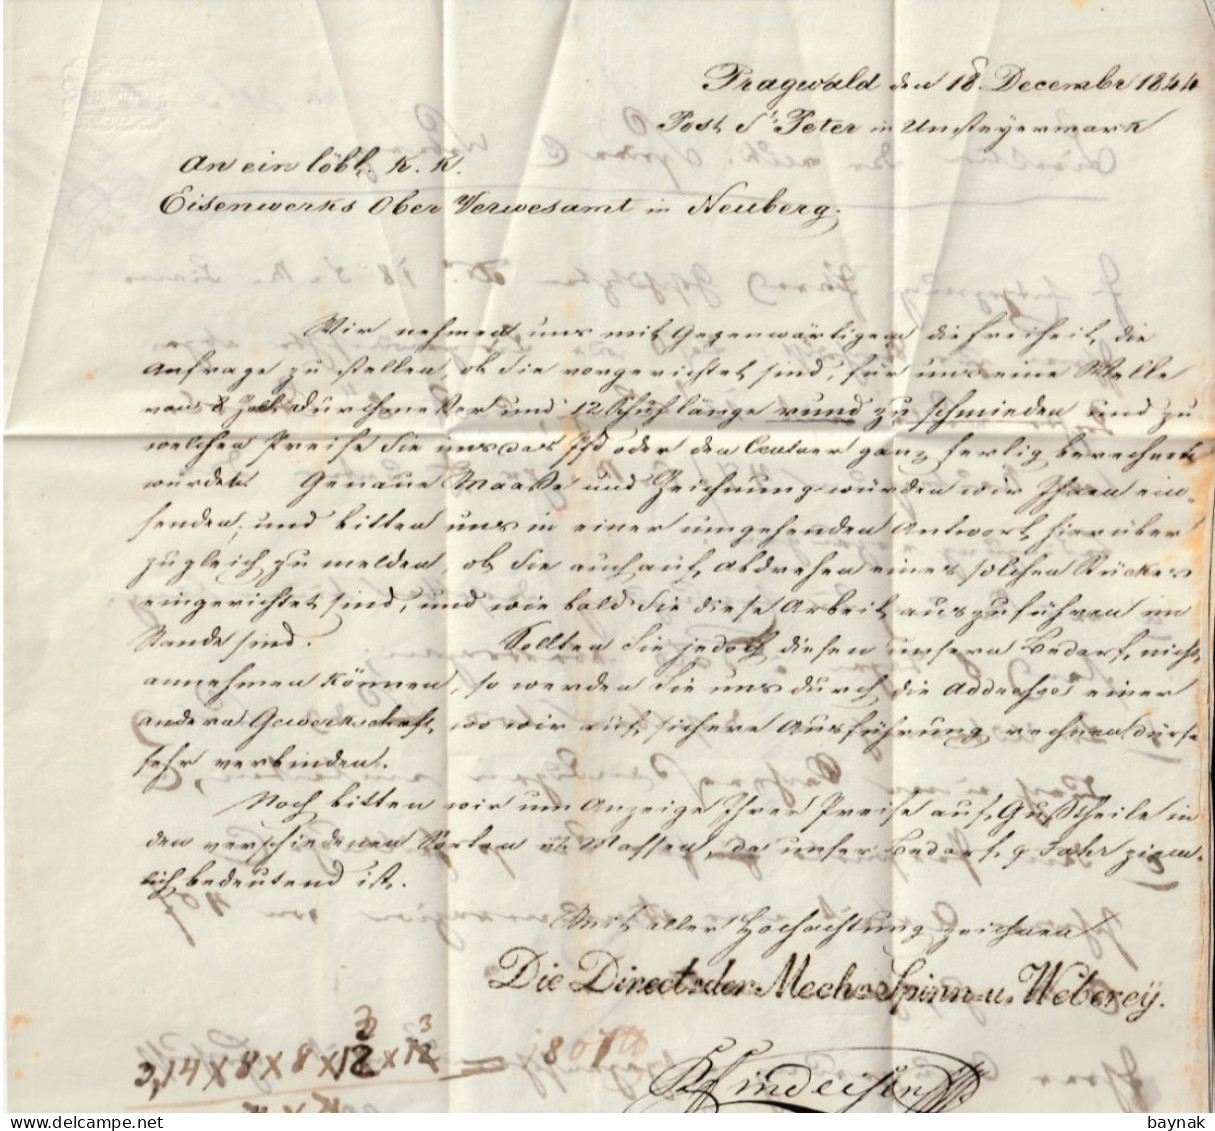 Pragwald den 18 Decembr 1844
Post St Peter in Unsteyermark
An ein löbl. K. K.
Eisenwerks Ober Verwesamt in Neuberg.
Wir nehmen uns mit Gegenwärtigem die freiheit, die
Anfrage zu stellen, ob Sie vorgerichtet sind, für uns eine Welle
von 8 Zoll Durchmesser und 12 Schuh länge rund zu schmieden und zu
welchen Preise Sie uns das Pfd oder den Centner ganz fertig berechnen
würden. Genaue Maaße und Zeichnung würden wir Ihnen ein-
senden, und bitten uns in einer umgehenden Antwort hierüber
zugleich zu melden, ob Sie auch auf Abdrehen eines solchen Stückes
eingerichtet sind, und wie bald Sie diese Arbeit auszuführen im
Stande sind. Sollten Sie jedoch diesen unsern Bedarf nicht
annehmen können, so werden Sie uns durch die Addresse einer
andern Gewerkschaft, wo wir auf sichere Ausführung rechnen dürfen
sehr verbinden.
Noch bitten wir um Anzeige Ihrer Preise auf Gußtheile in
den verschiedenen Sorten u. Massen, da unser Bedarf p Jahr ziem-
lich bedeutend ist.
Mit aller Hochachtung zeichnen
Die Direct. der Mech. Spinn- u. Weberey.
3,14 x 8 x 8 x 12 x 12 =
delcampe.net
baynak